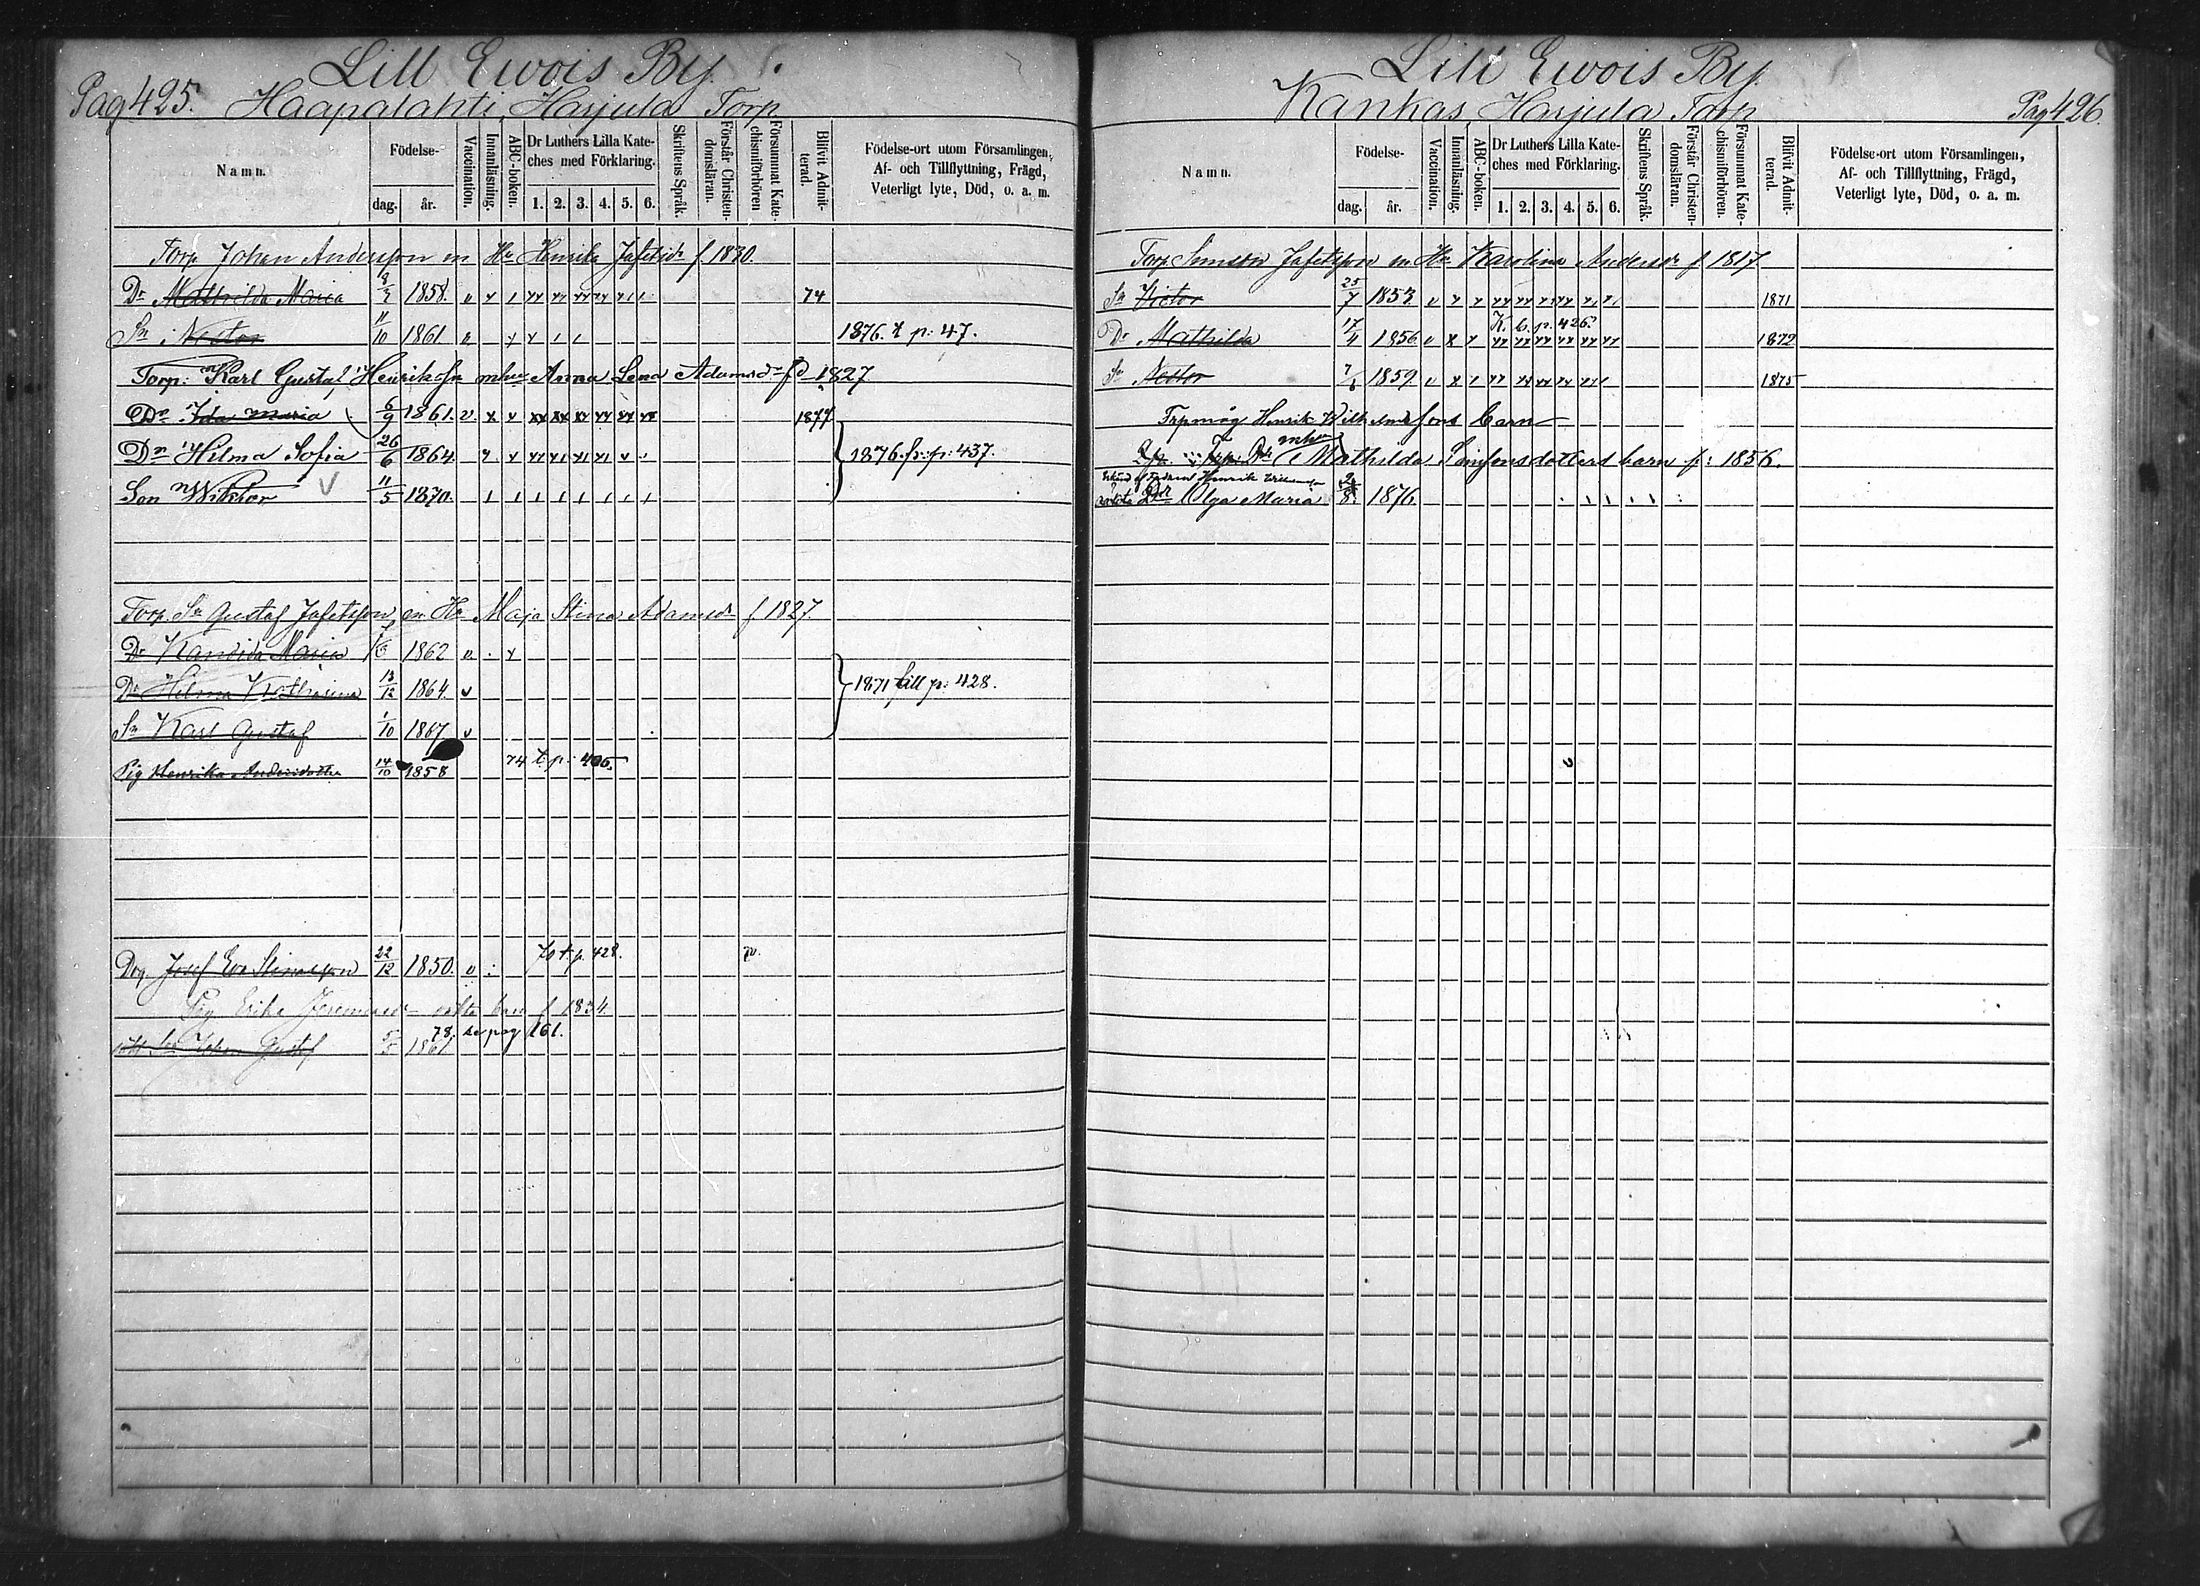 Lill Ewois By.
Pag 425. Haapalahti, Harjula Torp
Namn.
Födelse-
dag. år.
Vaccination.
Innanläsning.
ABC-boken.
Dr Luthers Lilla Kate-
ches med Förklaring.
1. 2. 3. 4. 5. 6.
Skriftens Språk.
Förstår Christen-
domsläran.
Försummat Kate-
chismiförhören
Blifvit Admit-
terad.
Födelse-ort utom Församlingen,
Af- och Tillflyttning, Frägd,
Veterligt lyte, Död, o. a. m.
Torp. Johan Andersson en Hu Henrika Jafetsdr f 1830.
Dr Mathilda Maria 1858. 74
Sn Nestor 11/10 1861 1876 t p: 47.
Torp: Karl Gustaf Henriksson m hu Anna Lena Adamsdr fd 1827
Dr Ida Maria 6/9 1861. 1877
Dr Hilma Sofia 26/6 1864 1876 fr: p: 437.
Son Wiktor 11/5 1870.
Torp. Sn Gustaf Jafetsson, en Hu Maja Stina Adamsdr f 1827.
Dr Kandida Maria 1862
Dr Hilma Katharina 13/12 1864. 1871 till p: 428.
Sn Karl Gustaf 1/10 1867
Pig Henrika Andersdotter 14/10 1858 74 t p: 406
Drg. Josef Eva Stinasson 22/12 1850. 70 t p. 428. 70.
Pig Erika Jeremiasdr oäkta barn f 1834.
78. se pag 161.
Sn Johan Gustaf 1861
Lill Ewois By.
Kankas, Harjula Torp Pag 426.
Namn.
Födelse-
dag. år.
Vaccination.
Innanläsning.
ABC-boken.
Dr Luthers Lilla Kate-
ches med Förklaring.
1. 2. 3. 4. 5. 6.
Skriftens Språk.
Förstår Christen-
domsläran.
Försummat Kate-
chismiförhören.
Blifvit Admit-
terad.
Födelse-ort utom Församlingen,
Af- och Tillflyttning, Frägd,
Veterligt lyte, Död, o. a. m.
Torp. Simson Jafetsson en Hu Karolina Andersdr f 1817
Sn Victor 25/7 1853 1871
K. b. p. 426.
Dr Mathilda 17/4 1856 1872
Sn Nestor 1859. 1875
Henrik Wilhelmssons barn
m hu
Mathilda Simsonsdotters barn f: 1856.
Henrik
oäkta Dr Olga Maria 1876